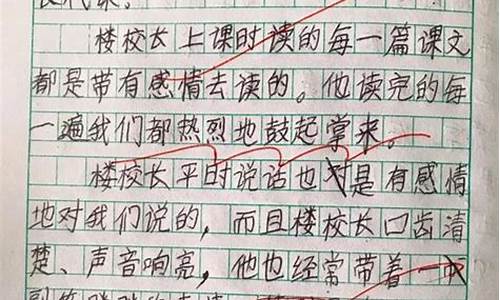 楼校长上课时读的每一篇课文
都是带有感情去读的。他读完的每
一遍我们都热烈地鼓起掌来。
楼校长平时说话也是有感情
地对我们说的，而且楼校长口齿清
楚、声音响亮，他也经常带着一